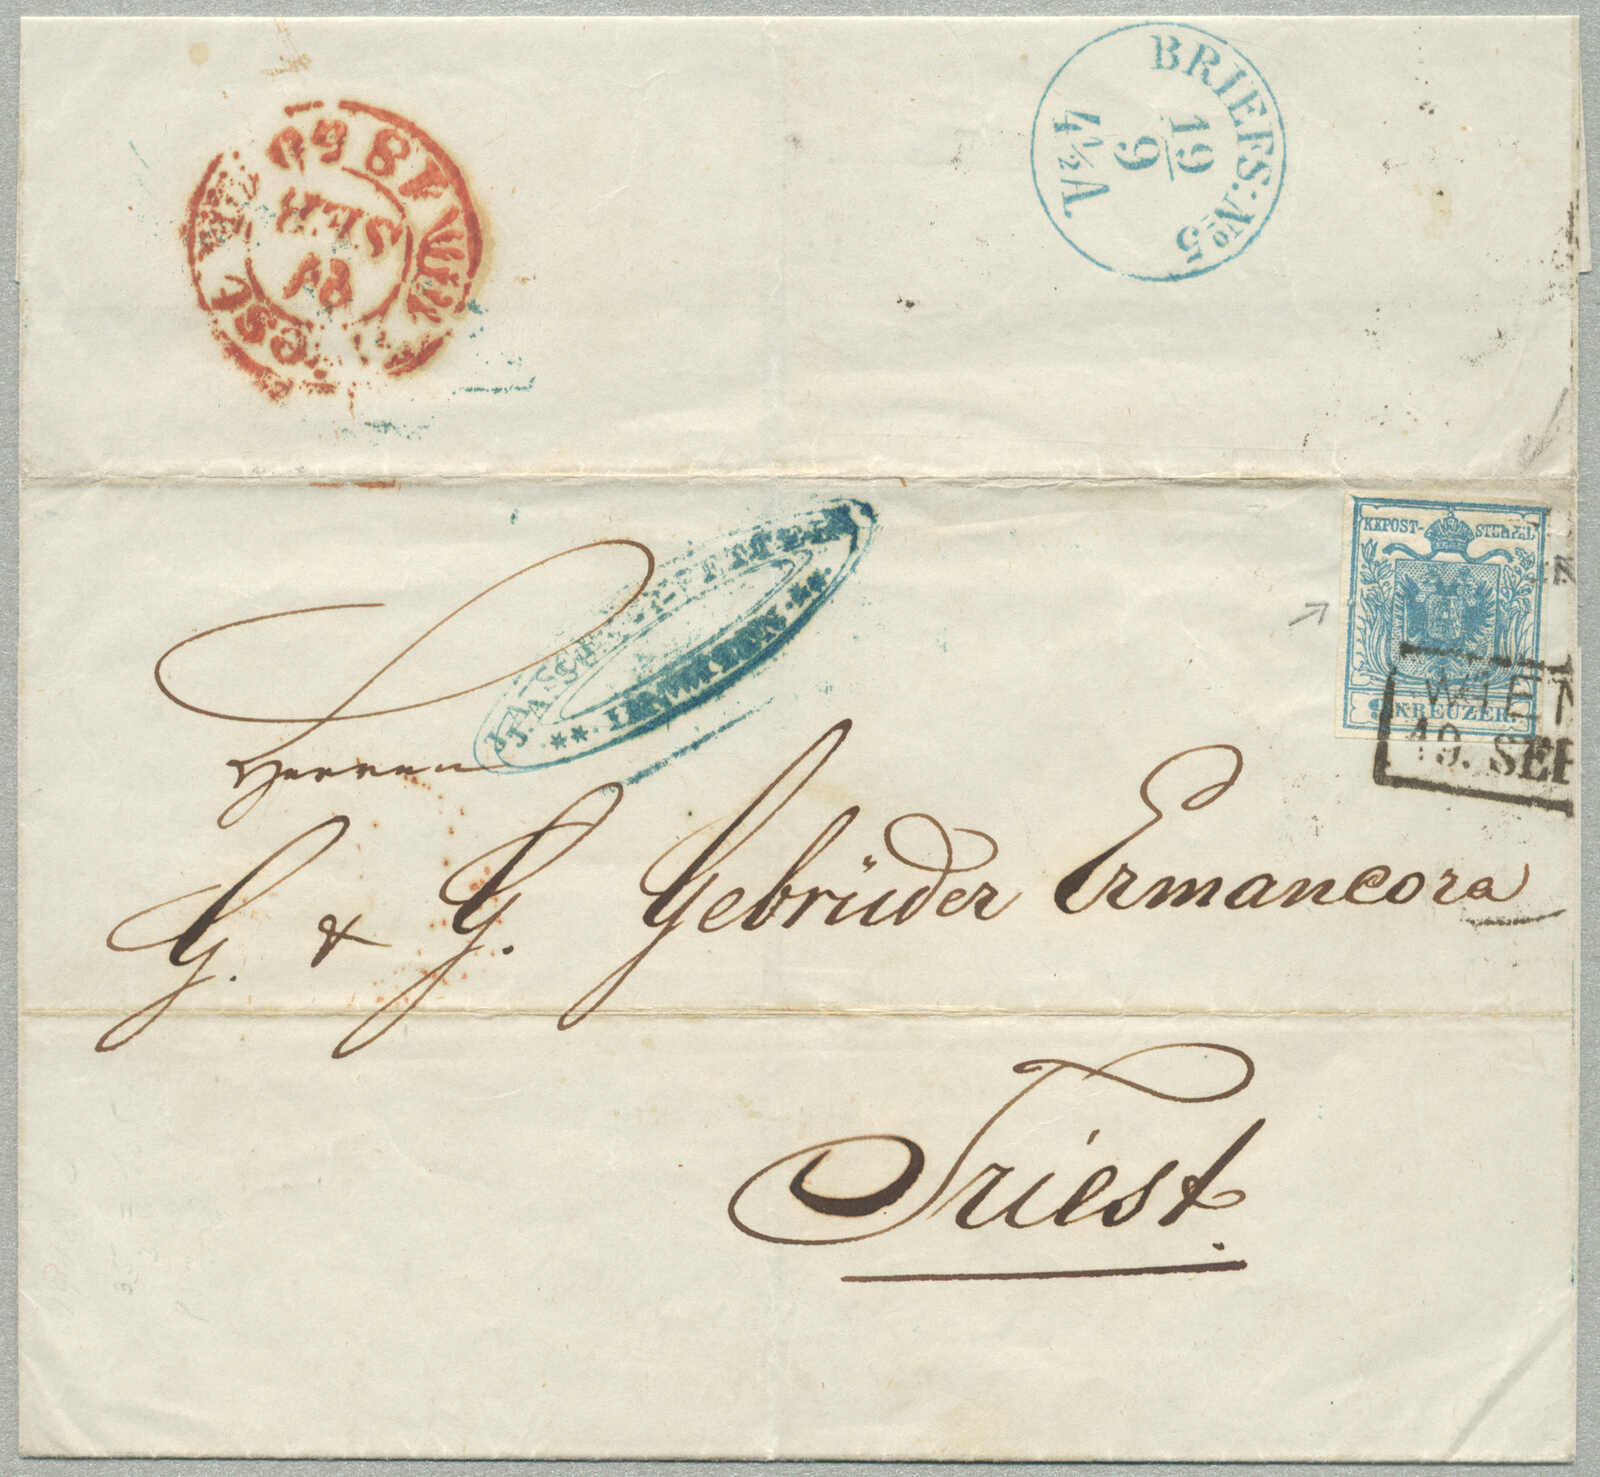 BRIEFS: No 5
19
9
4½A
18
SEP
KKPOST-STEMPEL
9 KREUZER.
WIEN
19. SEP
** IN WIEN. **
Herren
G. & G. Gebrüder Ermancora
Triest.